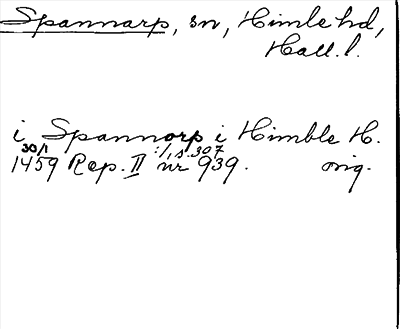 Spannarp, sn, Himle hd,
Hall. l.
i Spannorp i Himble H.
30/1 :1, s. 307
1459 Rep. II nr 939. orig.